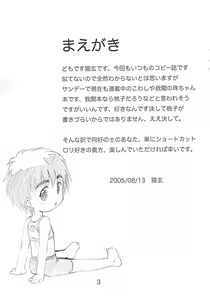 まえがき
どもです猫玄です、今回もいつものコピー誌です
似てないので全然わからないとは思いますが
サンデーで現在も連載中のこわしや我聞の珠ちゃん
本です、我聞本なら桃子だろうなどと言われそう
ですがいいんです、好きなんです決して桃子が
書きづらいからではありません、ええ決して。
そんな訳で同好の士のあなた、単にショートカット
ロリ好きの貴方、楽しんでいただければ幸いです。
2005/08/13 猫玄
3